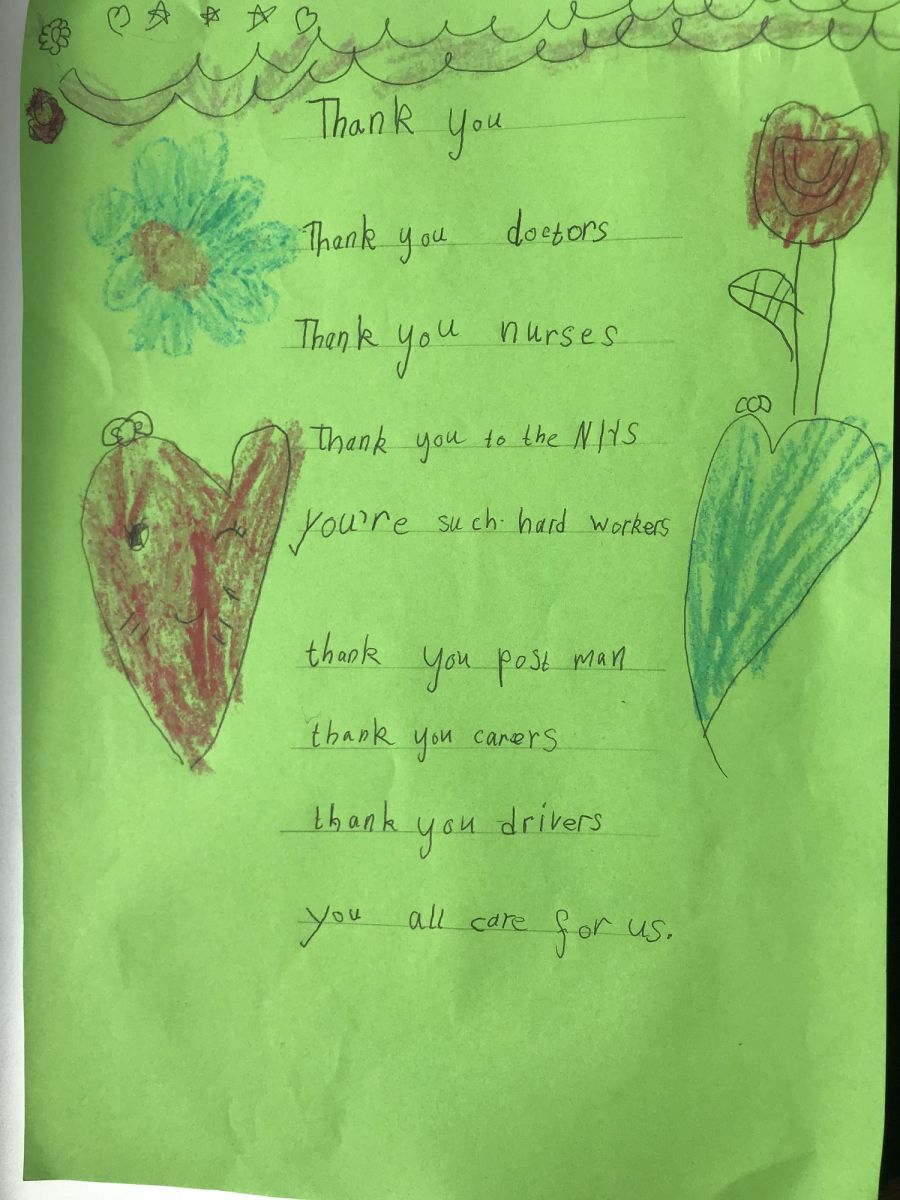 Thank you
Thank you doctors
Thank you nurses
Thank you to the NHS
you're such hard workers
thank you post man
thank you carers
thank you drivers
you all care for us.